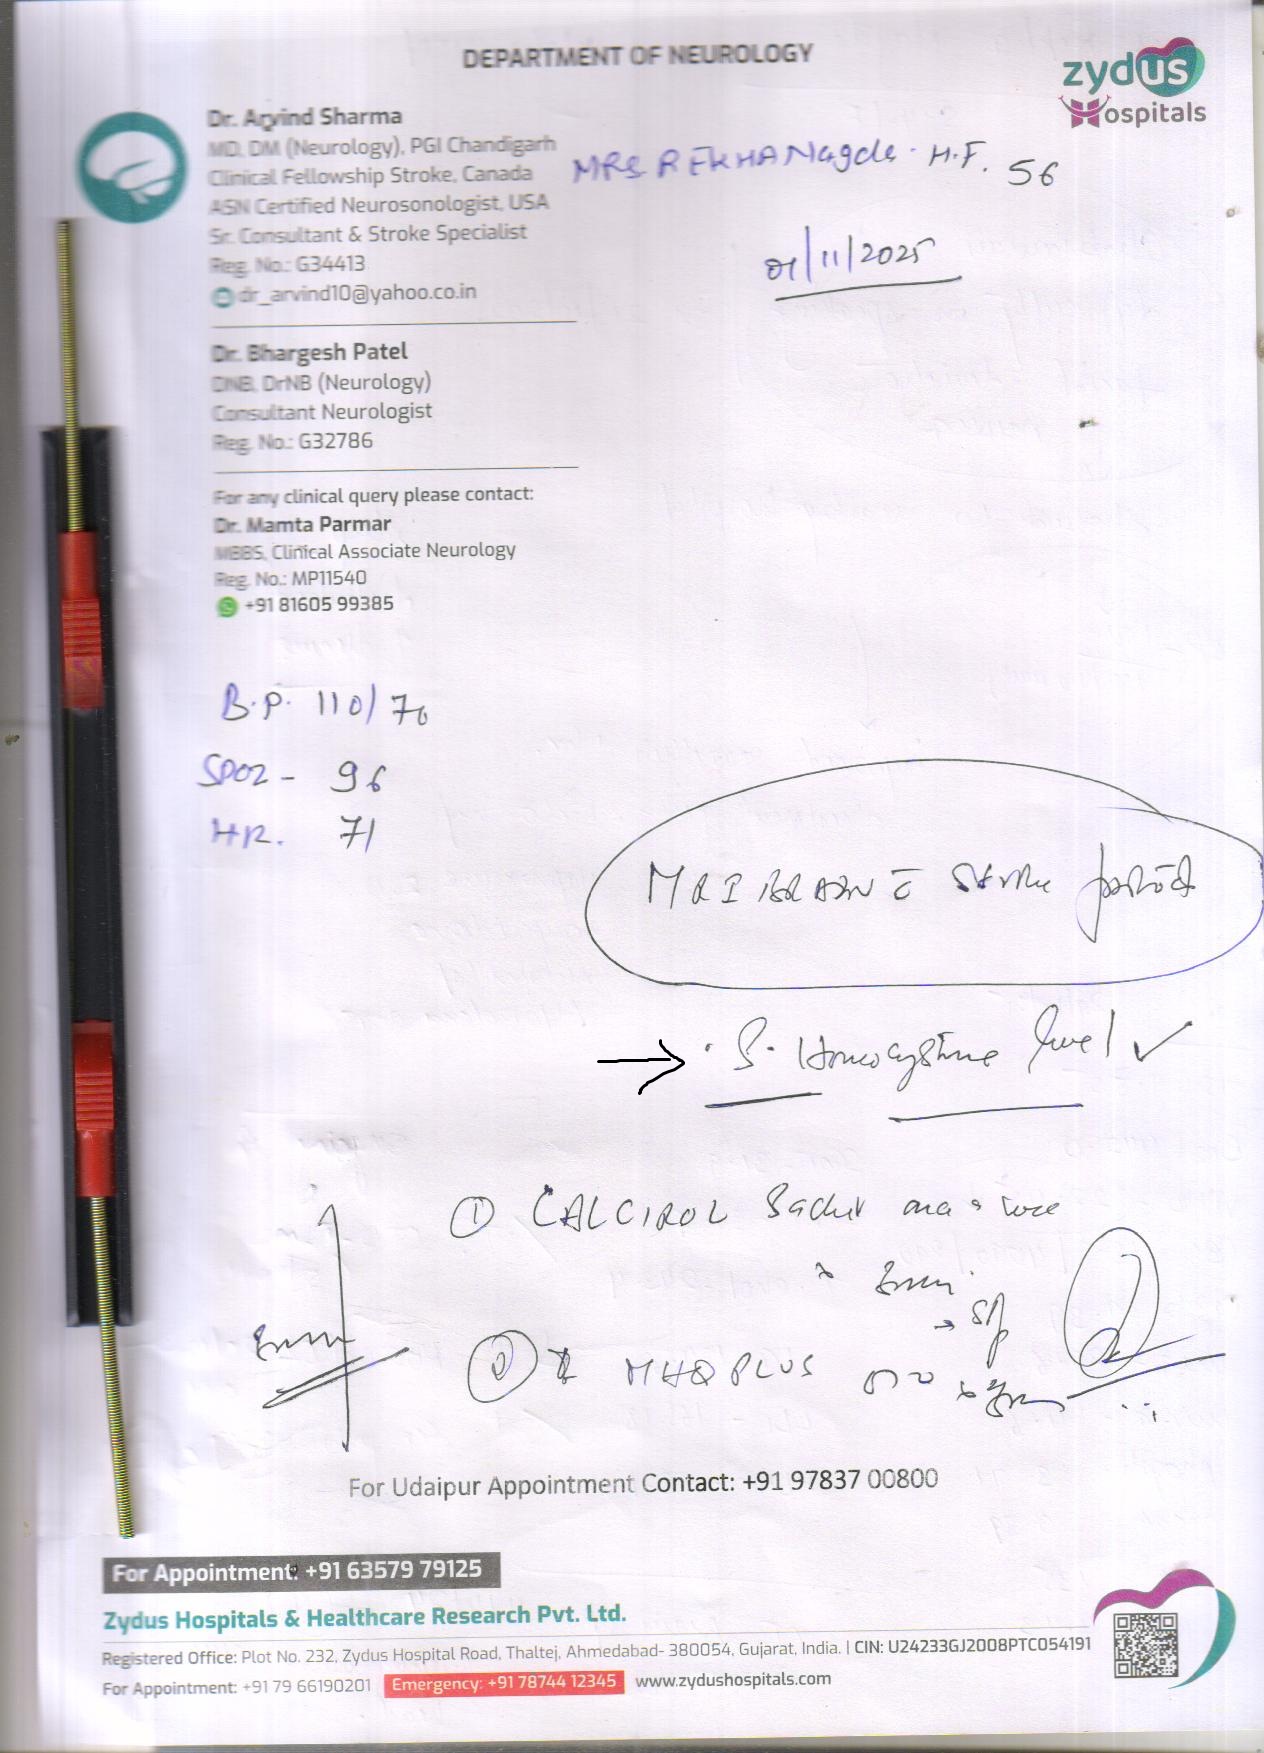 DEPARTMENT OF NEUROLOGY
zydus
Hospitals
Dr. Arvind Sharma
MD, DM (Neurology), PGI Chandigarh
Clinical Fellowship Stroke, Canada
ASN Certified Neurosonologist, USA
Sr. Consultant & Stroke Specialist
Reg. No.: G34413
dr_arvind10@yahoo.co.in
MRS REKHA Nagda. H.F. 56
01/11/2025
Dr. Bhargesh Patel
DNB, DrNB (Neurology)
Consultant Neurologist
Reg. No.: G32786
For any clinical query please contact:
Dr. Mamta Parmar
MBBS, Clinical Associate Neurology
Reg. No.: MP11540
+91 81605 99385
B.P. 110/70
SPO2 - 96
HR. 71
MRI BRAIN c̄ Stroke
→ S. Homocystine level ✓
① CALCIROL Sachet once a
② MHQ PLUS
For Udaipur Appointment Contact: +91 97837 00800
For Appointment: +91 63579 79125
Zydus Hospitals & Healthcare Research Pvt. Ltd.
Registered Office: Plot No. 232, Zydus Hospital Road, Thaltej, Ahmedabad- 380054, Gujarat, India. | CIN: U24233GJ2008PTC054191
For Appointment: +91 79 66190201 Emergency: +91 78744 12345 www.zydushospitals.com